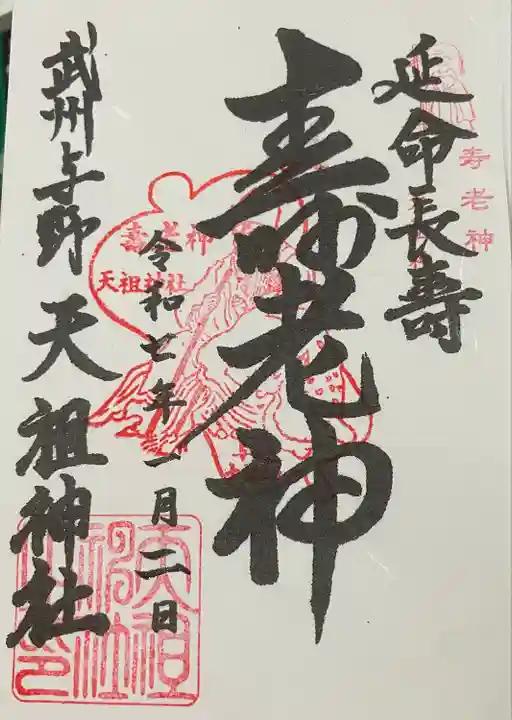 延命長壽
寿老神
壽老神
令和七年一月二日
壽老神
天祖神社
武州与野 天祖神社
天祖神社